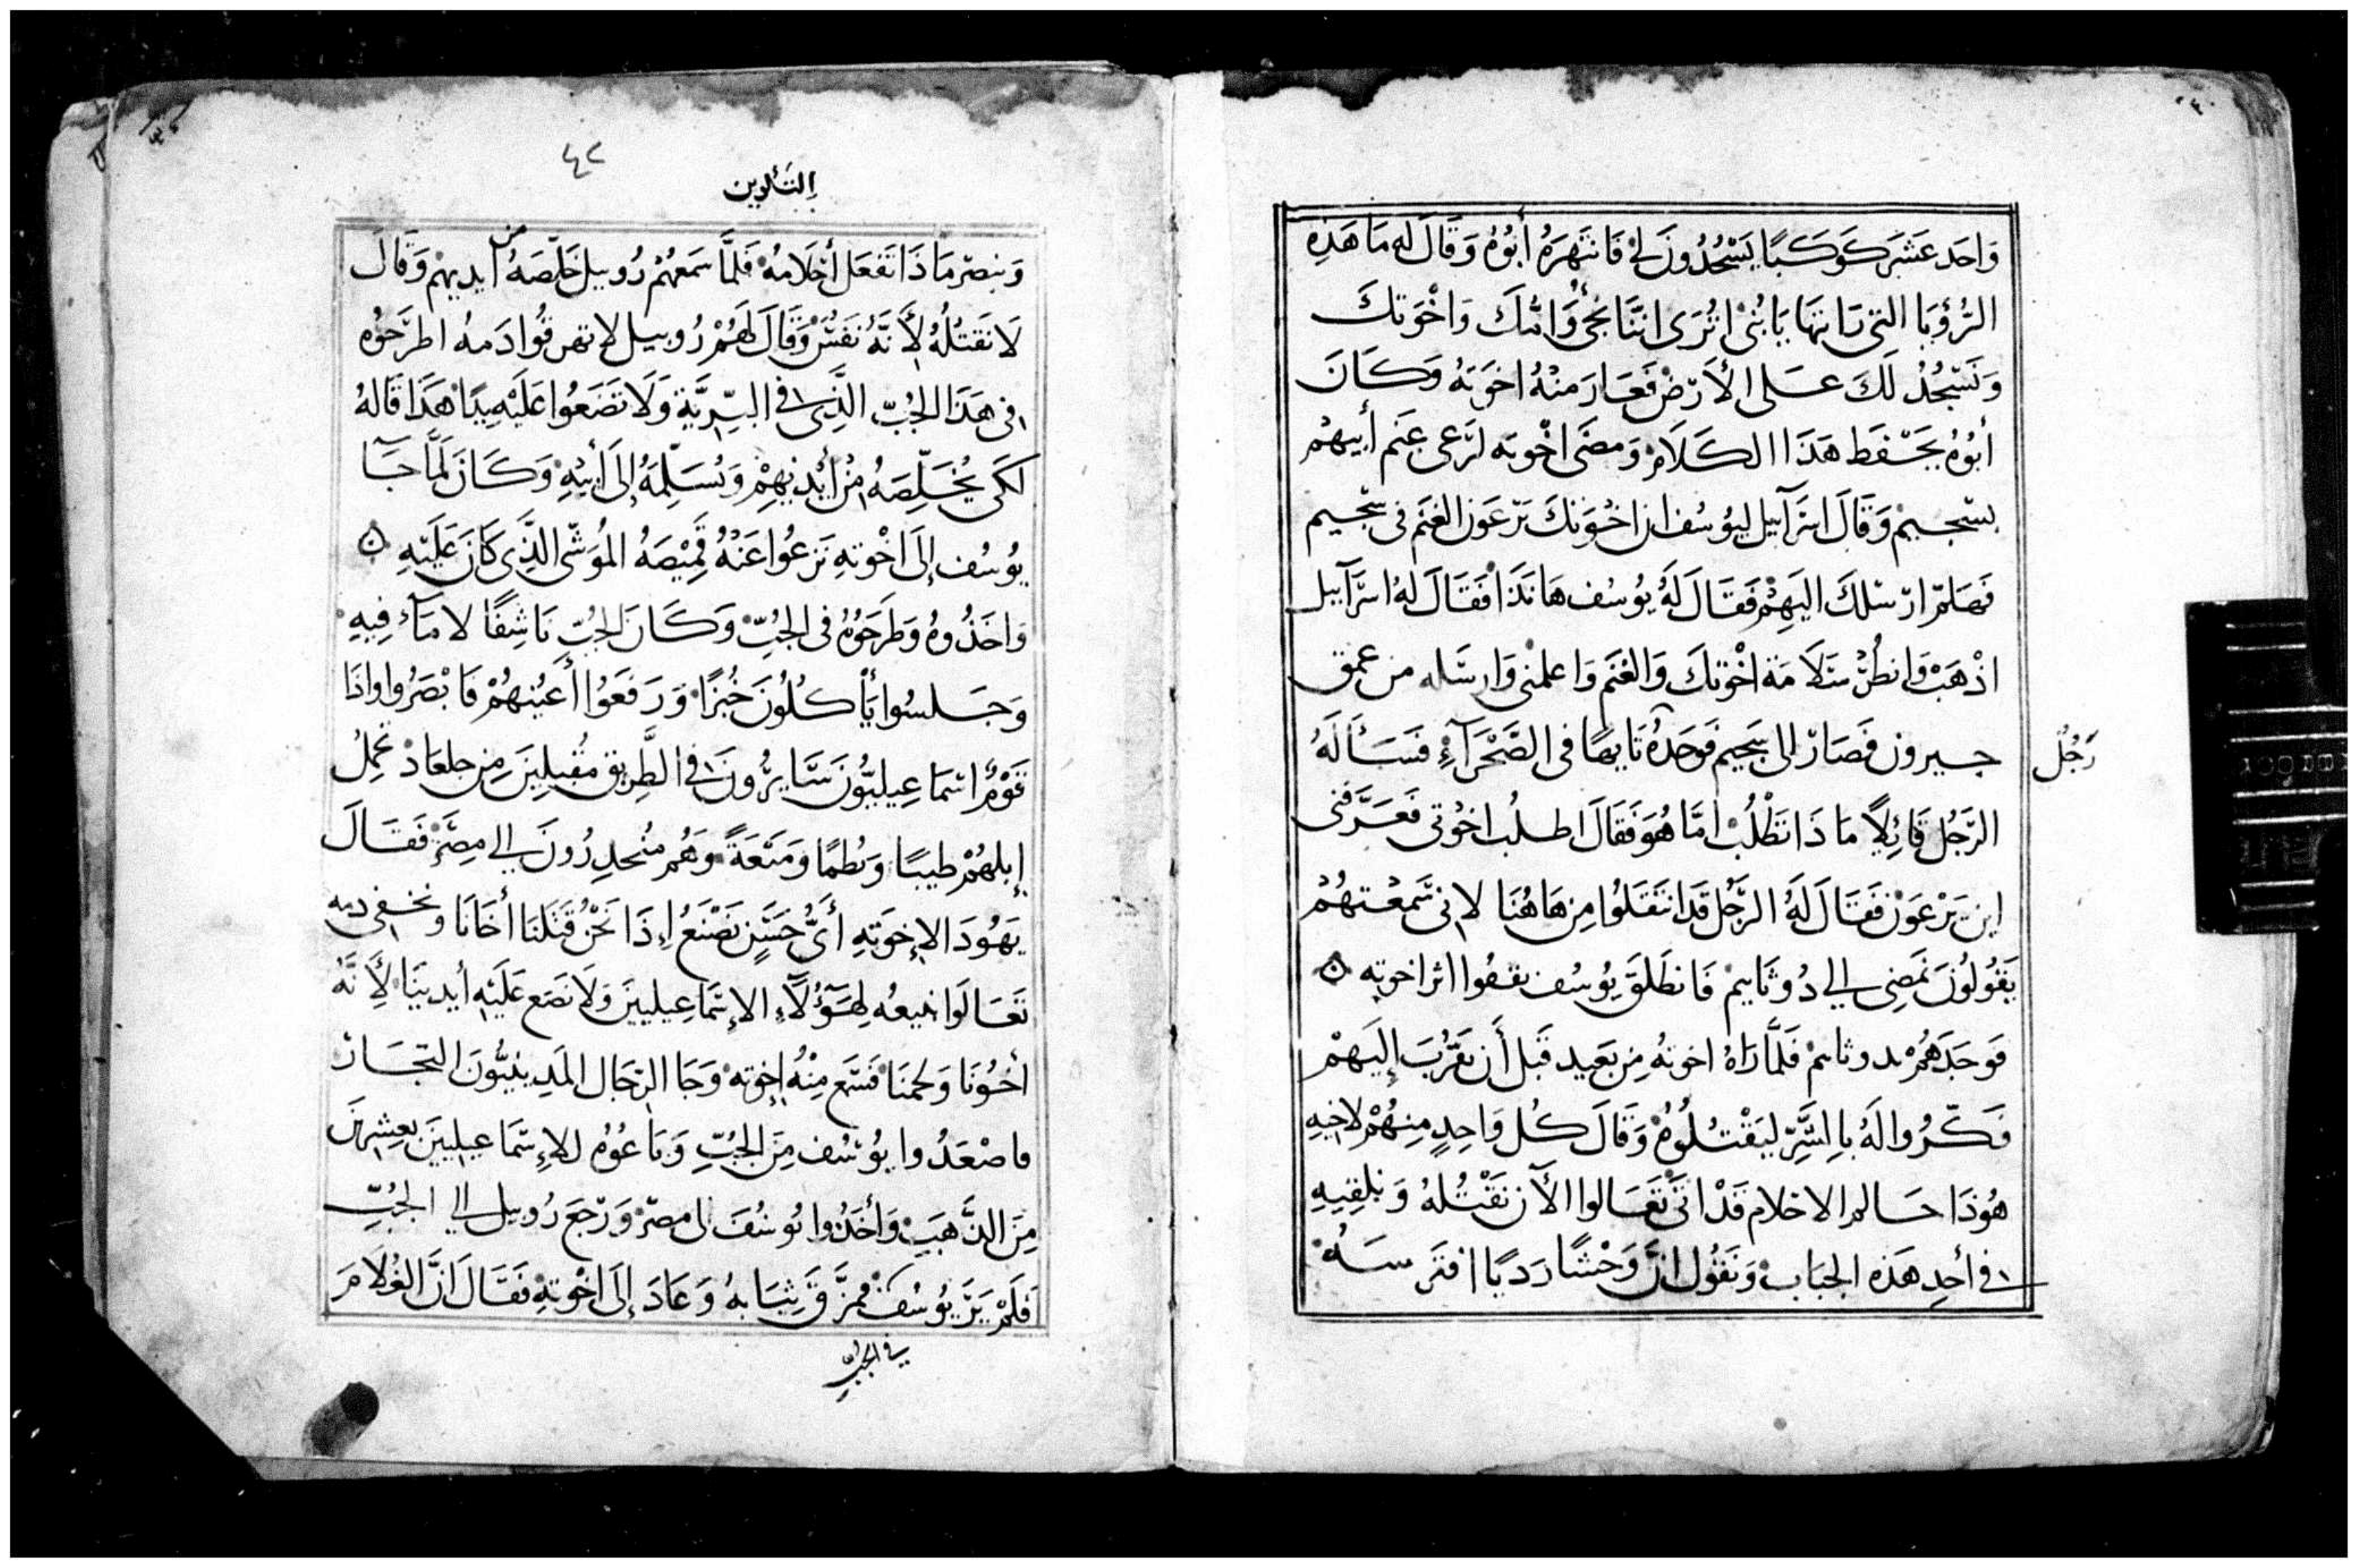 وَاحَد عَشَر كَوكَبًا يَسْجُدُونَ لِي فَانتَهَرَهُ أَبُوهُ وَقَالَ لَه مَا هَذِهِ
الرُّؤيَا التي رَايتهَا يَا بُنَي اتُرَى انَّنَا نَجي وَامّكَ وَاخْوَتكَ
وَنَسْجُدُ لَكَ عَلى الأرْض فَغَارَ مِنْهُ اخوَته وَكَانَ
أبُوهُ يَحْفَط هَذَا الكَلَام وَمضَى اخْوته لرَعي غنَم أبيهُم
بسْجيم وَقَالَ اسرَآييل ليُوسُف ان اخْوَتكَ يَرْعَون الغنَم في سْجيم
فَهَلمّ ارْسلكَ اليَهِمْ فَقَالَ لَهُ يُوسُف هَانَذَا فَقَالَ لهُ اسرَآييل
اذْهَبْ وَانطُر سَلَامَة اخْوتكَ وَالغنَم وَاعلمْني وَارسَله من عمق
جبرون فصَارَ الى سَجيم فَوجَدَهُ تَايهًا في الصَّحْرَآءِ فَسَأَلَهُ
رَجُل
الرَّجُل قَائِلًا مَا ذَا تَطْلُب امَّا هُوَ فَقَالَ اطلُب اخْوَتي فَعَرَّفْني
اين يَرْعَوْن فَقَالَ لَهُ الرَّجُل قَد انتَقَلُوا مِن هَاهُنَا لاني سَمعْتهُمْ
يَقُولُونَ نَمضِي الي دُوثَايم فَانطَلَقَ يُوسُف يقفُوا اثر اخوته ۞
فَوجَدَهُمْ بدوثايم فَلَمَّا رَاهُ اخوتهُ مِن بَعيد قَبل أَن يَقرُبَ إِلَيهمْ
فَكّرُوا لَهُ بِالشَّرِّ ليَقْتُلُوهُ وَقَالَ كُل وَاحِدٍ مِنهُمْ لاخيهِ
هُوَذَا حَالم الاحْلام قَدْ اتَى تَعَالوا الآن نَقْتُلهُ وَنلقِيهِ
في أحدِ هَذه الجبَاب وَنَقُول انَّ وَحْشًا رَديًا افتَرسَهُ
٤٢
التَكوين
وَنبصر مَا ذَا تَفعَل أحْلامهُ فَلمَّا سَمعهُمْ رُوبيل خَلّصَهُ من ايديهمْ وَقَالَ
لَا نَقتُلُهُ لأَنَّهُ نَفسٌ وَقَالَ لَهُمْ رُوبيل لا تهرقُوا دَمهُ اطرَحُوه
في هَذَا الجُبّ الَّذِي في البَرِّيَّةِ وَلَا تَضَعُوا عَلَيْهِ يَدًا هَذَا قَالَهُ
لكَي يُخَلّصَهُ مِنْ أَيْدِيهِمْ وَيُسَلّمَهُ إلَى أَبيْهِ وَكَانَ لَمَّا جَآ
يُوسُف إِلَى اخْوتهِ نَزعُوا عَنْهُ قَمِيْصَهُ المُوَشّى الَّذِي كَانَ عَلَيْهِ ۞
وَاخَذُوهُ وَطَرَحَوُهُ في الجُبّ وَكَانَ الجُبّ نَاشِفًا لا مَآء فِيهِ
وَجَلسُوا يَأكُلُونَ خُبزًا وَرَفَعَوُا أَعيُنهُمْ فَابْصَرُوا وَاذَا
قَوْمٌ اسْمَاعِيليُّونَ سَايرُونَ في الطّرِيق مُقبِلِينَ مِن جلعَاد تحمِلُ
إبلهُمْ طيبًا وَبُطمًا وَمَيْعَةً وَهُم مُنحدِرُونَ الي مِصْرَ فَقَالَ
يَهُودَا لإخوَتهِ أَيُّ حَسَنٍ نَصْنَعُ إِذَا نَحْنُ قَتَلنَا أَخَانَا وَنخفي دمه
تَعَالَوا نبيعُه لِهَؤُلَآءِ الإسْمَاعِيليينَ وَلَا نَضَع عَلَيْهِ أَيدينَا لِأَنَّهُ
أخُونَا وَلحمنَا فَسَمَع مِنْهُ إخوته وَجَا الرّجَال المَدِينيُّونَ التجَار
فاصْعَدُوا يُوسُف مِنَ الجُبِّ وَبَاعُوُه للإسْمَاعيليينَ بعِشرِينَ
مِنَ الذَّهَبِ وَأَخَذُوا يُوسُفَ الى مصرَ وَرَجعَ رُوبيل الي الجُبِّ
فَلَمْ يَرَ يُوسُف فمزَّقَ ثِيَابهُ وَعَادَ إلَى اخْوتهِ فَقَالَ انَّ الغُلَامَ
في الجُبِّ